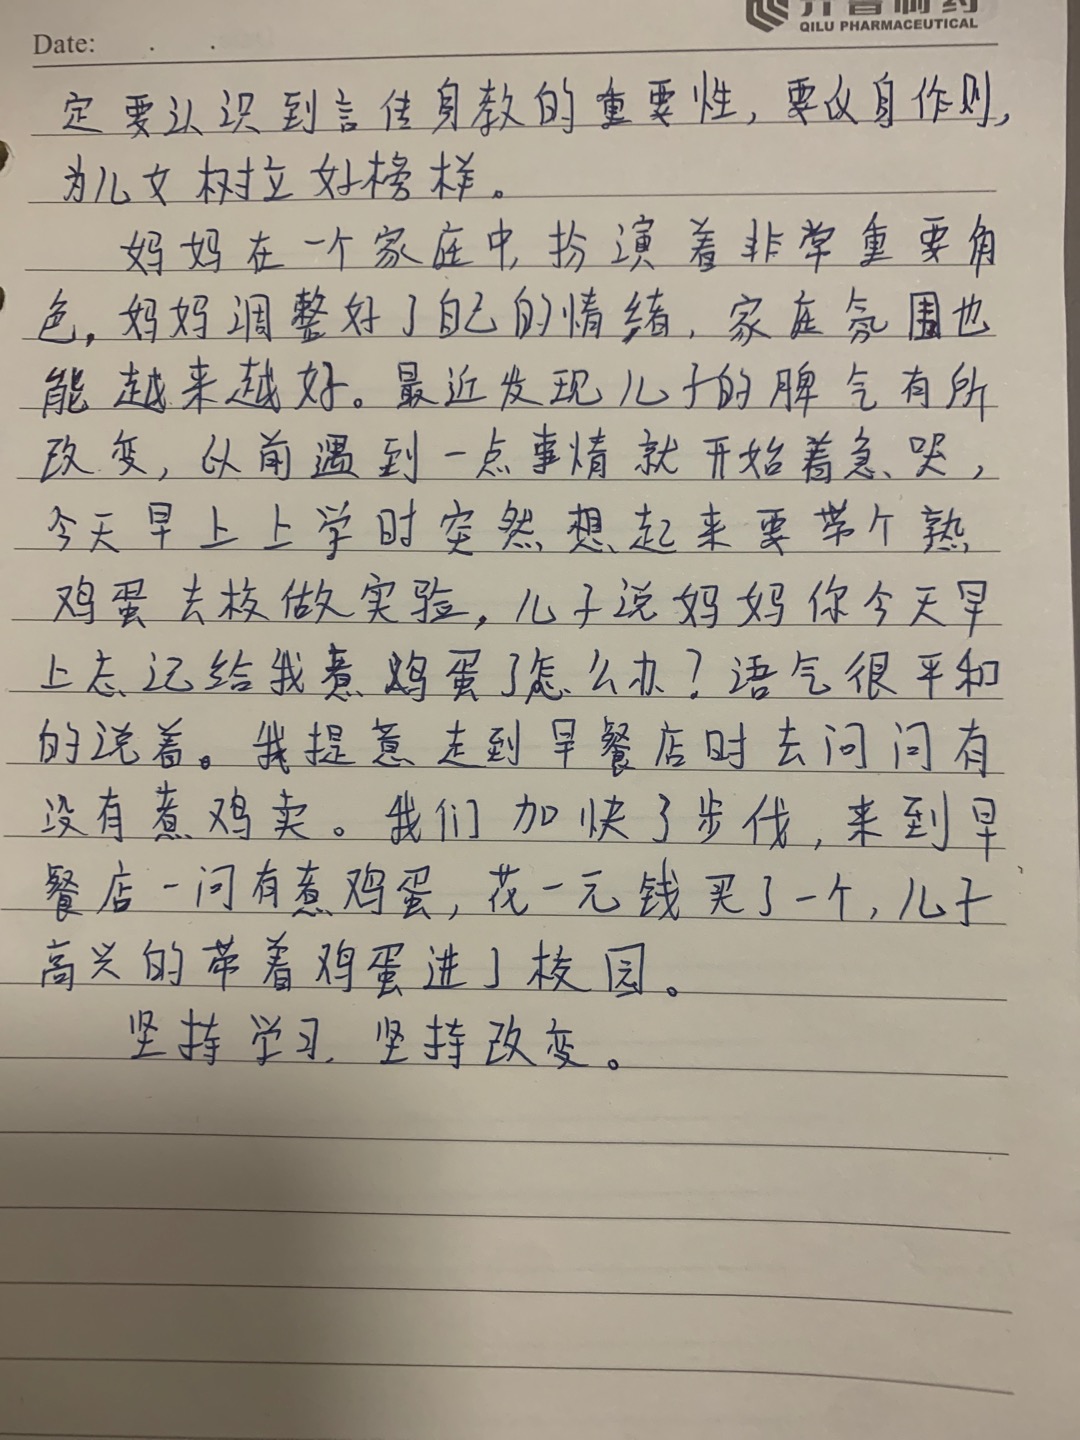 齐鲁制药
QILU PHARMACEUTICAL
Date: . .
定要认识到言传身教的重要性，要以身作则，
为儿女树立好榜样。
妈妈在一个家庭中，扮演着非常重要角
色，妈妈调整好了自己的情绪，家庭氛围也
能越来越好。最近发现儿子的脾气有所
改变，以前遇到一点事情就开始着急、哭，
今天早上上学时突然想起来要带个熟
鸡蛋去校做实验，儿子说妈妈你今天早
上忘记给我煮鸡蛋了怎么办？语气很平和
的说着。我提意走到早餐店时去问问有
没有煮鸡卖。我们加快了步伐，来到早
餐店一问有煮鸡蛋，花一元钱买了一个，儿子
高兴的带着鸡蛋进了校园。
坚持学习，坚持改变。